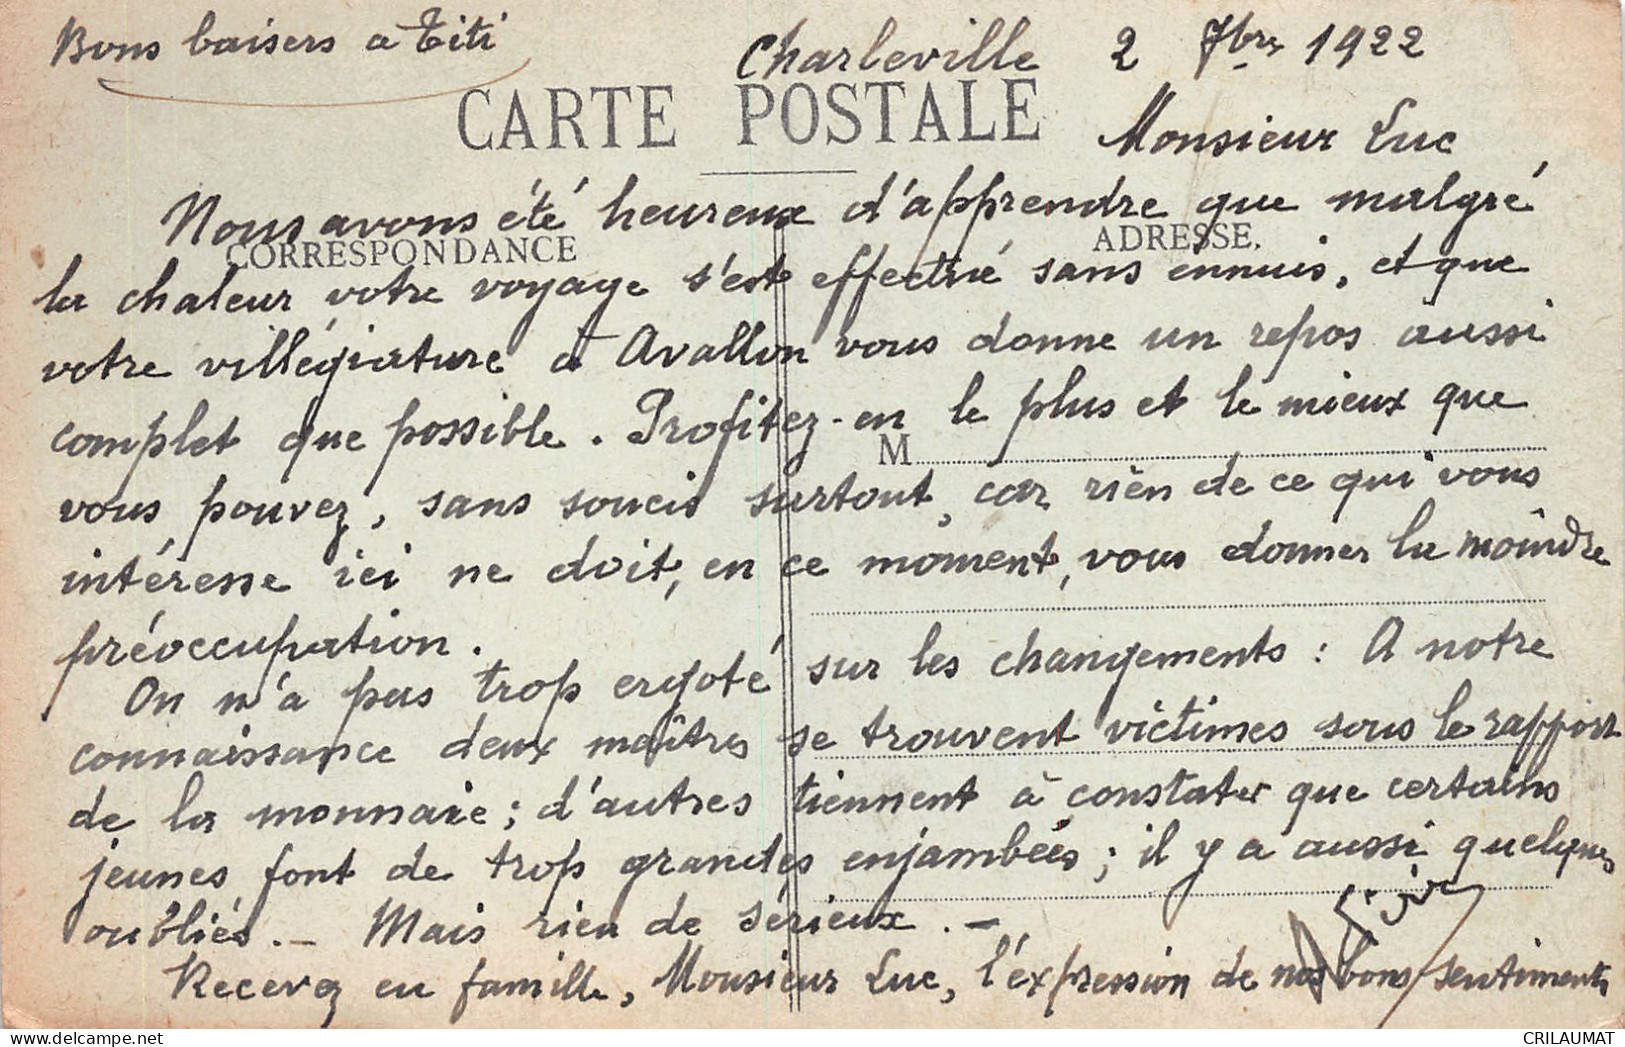 Bons baisers a Titi
Charleville 2 7bre 1922
CARTE POSTALE
Monsieur Luc
Nous avons été heureux d'apprendre que malgré
CORRESPONDANCE
ADRESSE.
la chaleur votre voyage s'est effectué sans ennuis, et que
votre villégiature à Avallon vous donne un repos aussi
complet que possible. Profitez-en le plus et le mieux que
M
vous pouvez, sans soucis surtout, car rien de ce qui vous
intéresse ici ne doit, en ce moment, vous donner la moindre
préoccupation.
On n'a pas trop ergoté sur les changements : A notre
connaissance deux maîtres se trouvent victimes sous le rapport
de la monnaie ; d'autres tiennent à constater que certains
jeunes font de trop grandes enjambées ; il y a aussi quelques
oubliés. – Mais rien de sérieux. –
Recevez en famille, Monsieur Luc, l'expression de nos bons sentiments
CRILAUMAT